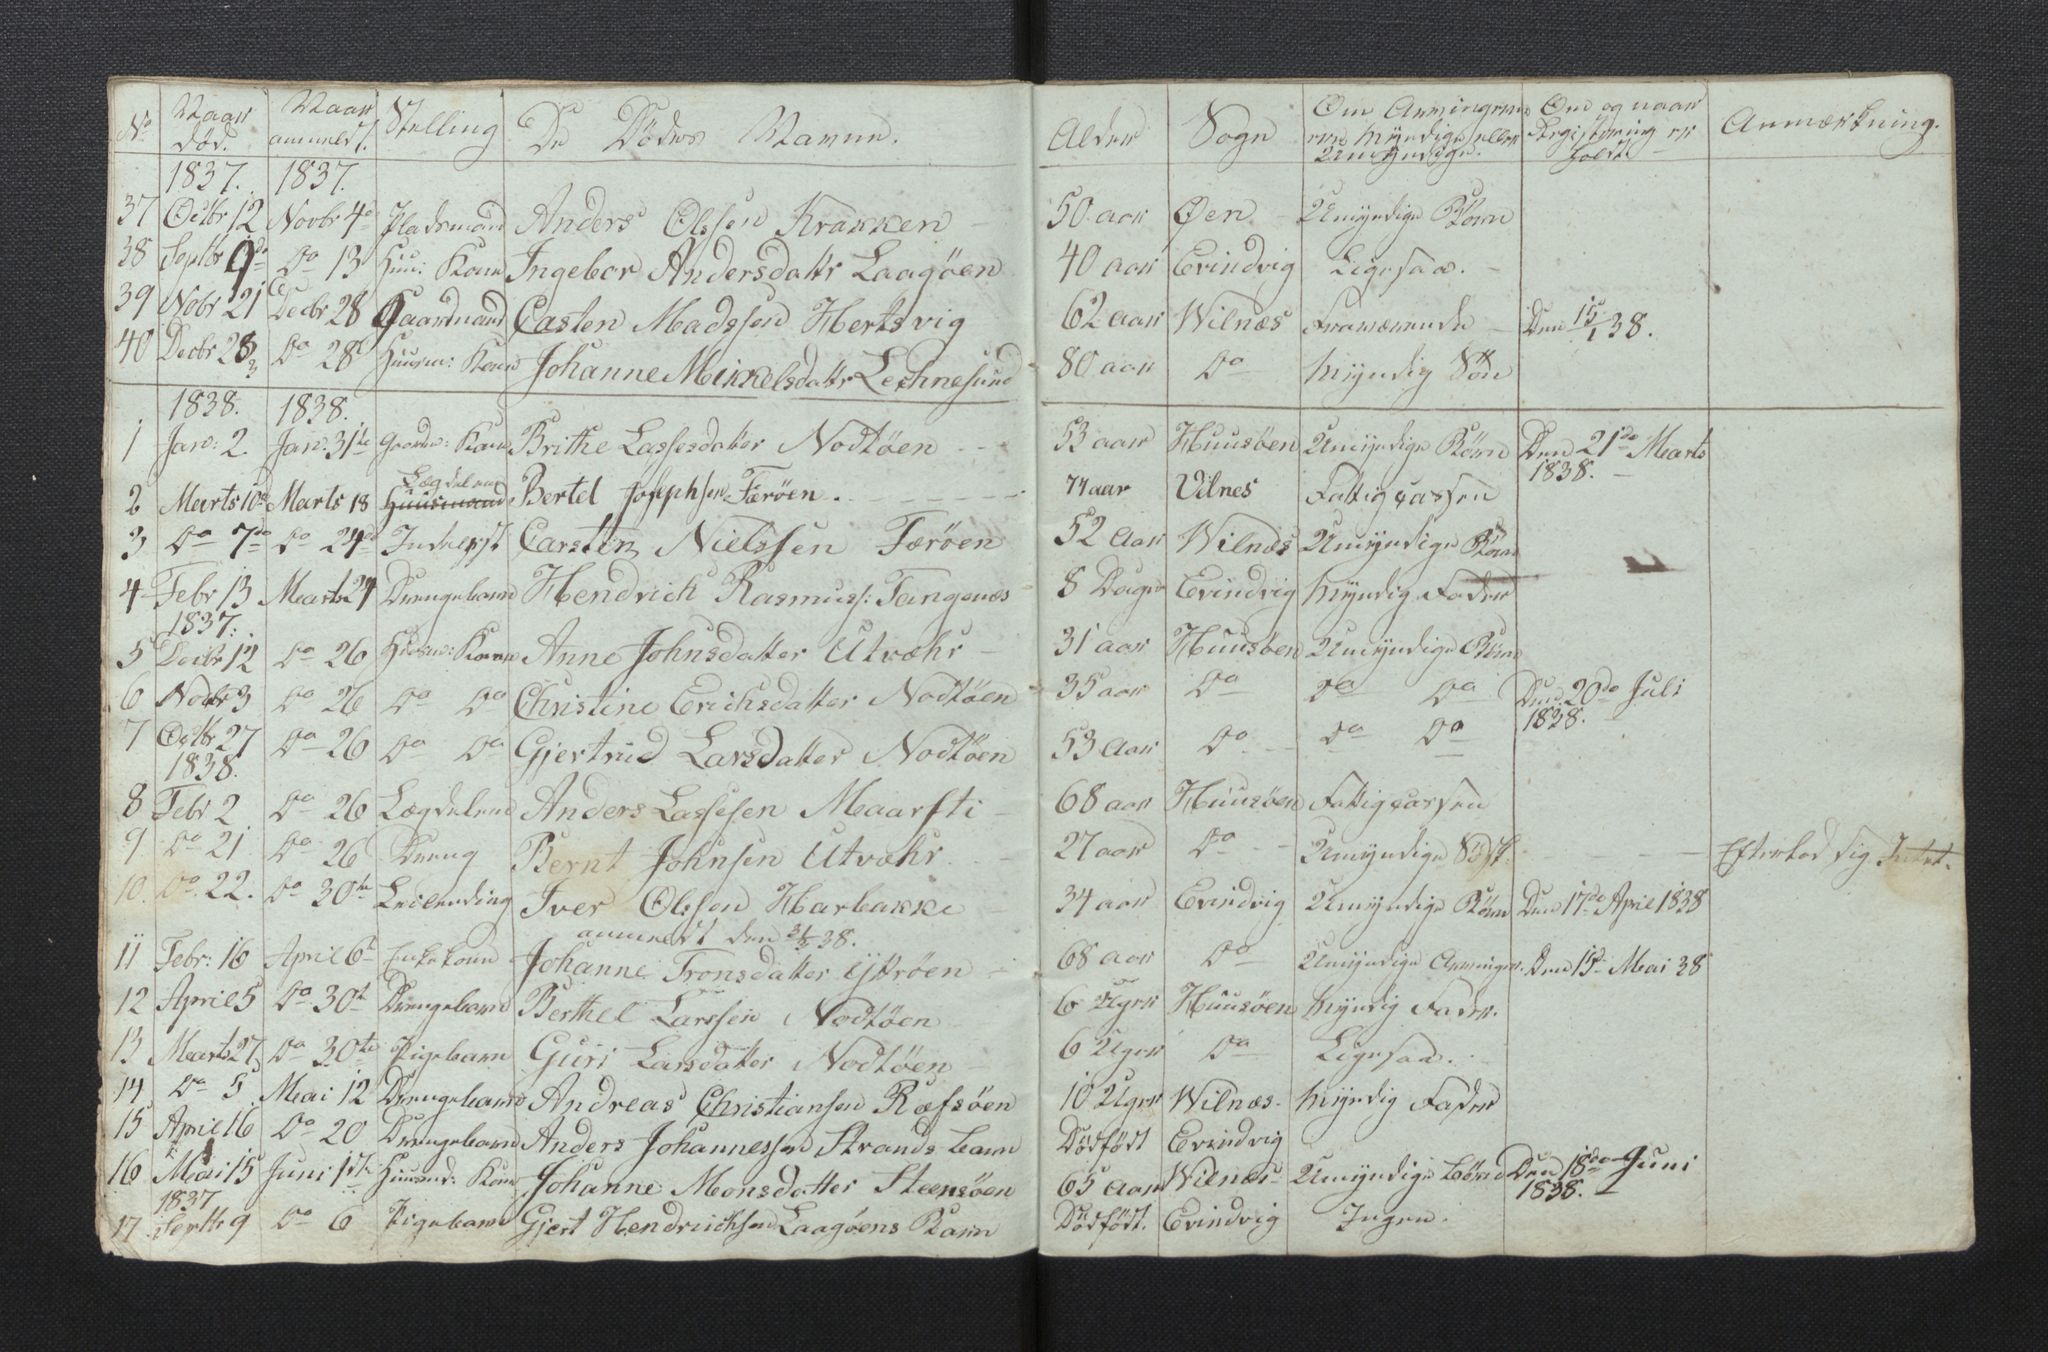 No Naar død. Naar anmeldt. Stilling De Dødes Navne. Alder Sogn Om Arvingerne ere Myndige eller Umyndige. Om og naar Registering er holdt Anmærkning.
1837. 1837.
37 Octbr 12 Novbr 4de Pladsmand Anders Olssen Krakken 50 aar Øen Umyndige Børn
38 Septbr 9de do 13 Huu: Kone Ingebor Andersdattr Laagøen 40 aar Evindvig Ligesaa.
39 Nobr 21 Decbr 28 Gaardmand Casten Madssen Hertsvig 62 aar Wilnæs Fraværende Den 15/1 38.
40 Decbr 23 do 28 Huusm: Kone Johanne Mikkelsdattr Lechnesund 80 aar do Myndig Søn
1838. 1838.
1 Jan: 2. Jan: 31te Gaardm: Kone Brithe Lassesdatter Nodtøen 53 aar Huusøen Umyndige Børn Den 21de Marts 1838.
2 Marts 10de Marts 18 Lægdelem Huusmand Bertel Josephsen Færøen. 74 aar Vilnes Fattigcassen
3 do 7de do 24de Inderst Carsten Nielssen Færøen 52 aar Wilnæs Umyndige Børn
4 Febr 13 Marts 24 Drengebarn Hendrich Rasmuss: Tangenæs 8 Dage Evindvig Myndig Fader
1837:
5 Decbr 12 do 26 Huusm: Kone Anne Johnsdatter Utvæhr 31 aar Huusøen Umyndige Børn
6 Nobr 3 do 26 do do Christine Erichsdatter Nodtøen 35 aar do do do Den 20de Juli 1838.
7 Octbr 27 do 26 do do Gjertrud Larsdatter Nodtøen 53 aar do do do
1838.
8 Febr 2 do 26 Lægdelem Anders Lassesen Maarsti 68 aar Huusøen Fattigcassen
9 do 21 do 26 Dreng Bernt Johnsen Utvæhr 27 aar do Umyndige Sødsk: Efterlod sig Intet.
10. do 22. do 30te Leilending Iver Olssen Harbakke 34 aar Evindvig Umyndige Børn Den 17de April 1838
anmeldt den 31/3 38.
11 Febr: 16 April 6te Enkekone Johanne Tronsdatter Ytrøen 68 aar do Umyndige Arvinger. Den 15de Mai 38
12 April 5 do 30te Drengebarn Berthel Larssen Nodtøen 6 Uger Huusøen Myndig Fader.
13 Marts 27 do 30te Pigebarn Guri Larsdatter Nodtøen 6 Uger do Ligesaa.
14 do 5 Mai 12 Drengebarn Andreas Christiansen Ræfsøen 10 Uger Wilnæs. Myndig Fader
15 April 16 do 20 Drengebarn Anders Johannessen Strands barn Dødfødt Evindvig
16 Mai 15 Juni 1te Huusmd: Kone Johanne Monsdatter Steensøen 65 aar Wilnæs Umyndige børn Den 18de Juni 1838.
1837
17 Septbr 9 do 6 Pigebarn Gjert Hendrichsen Laagøens Barn Dødfødt. Evindvig Ingen.